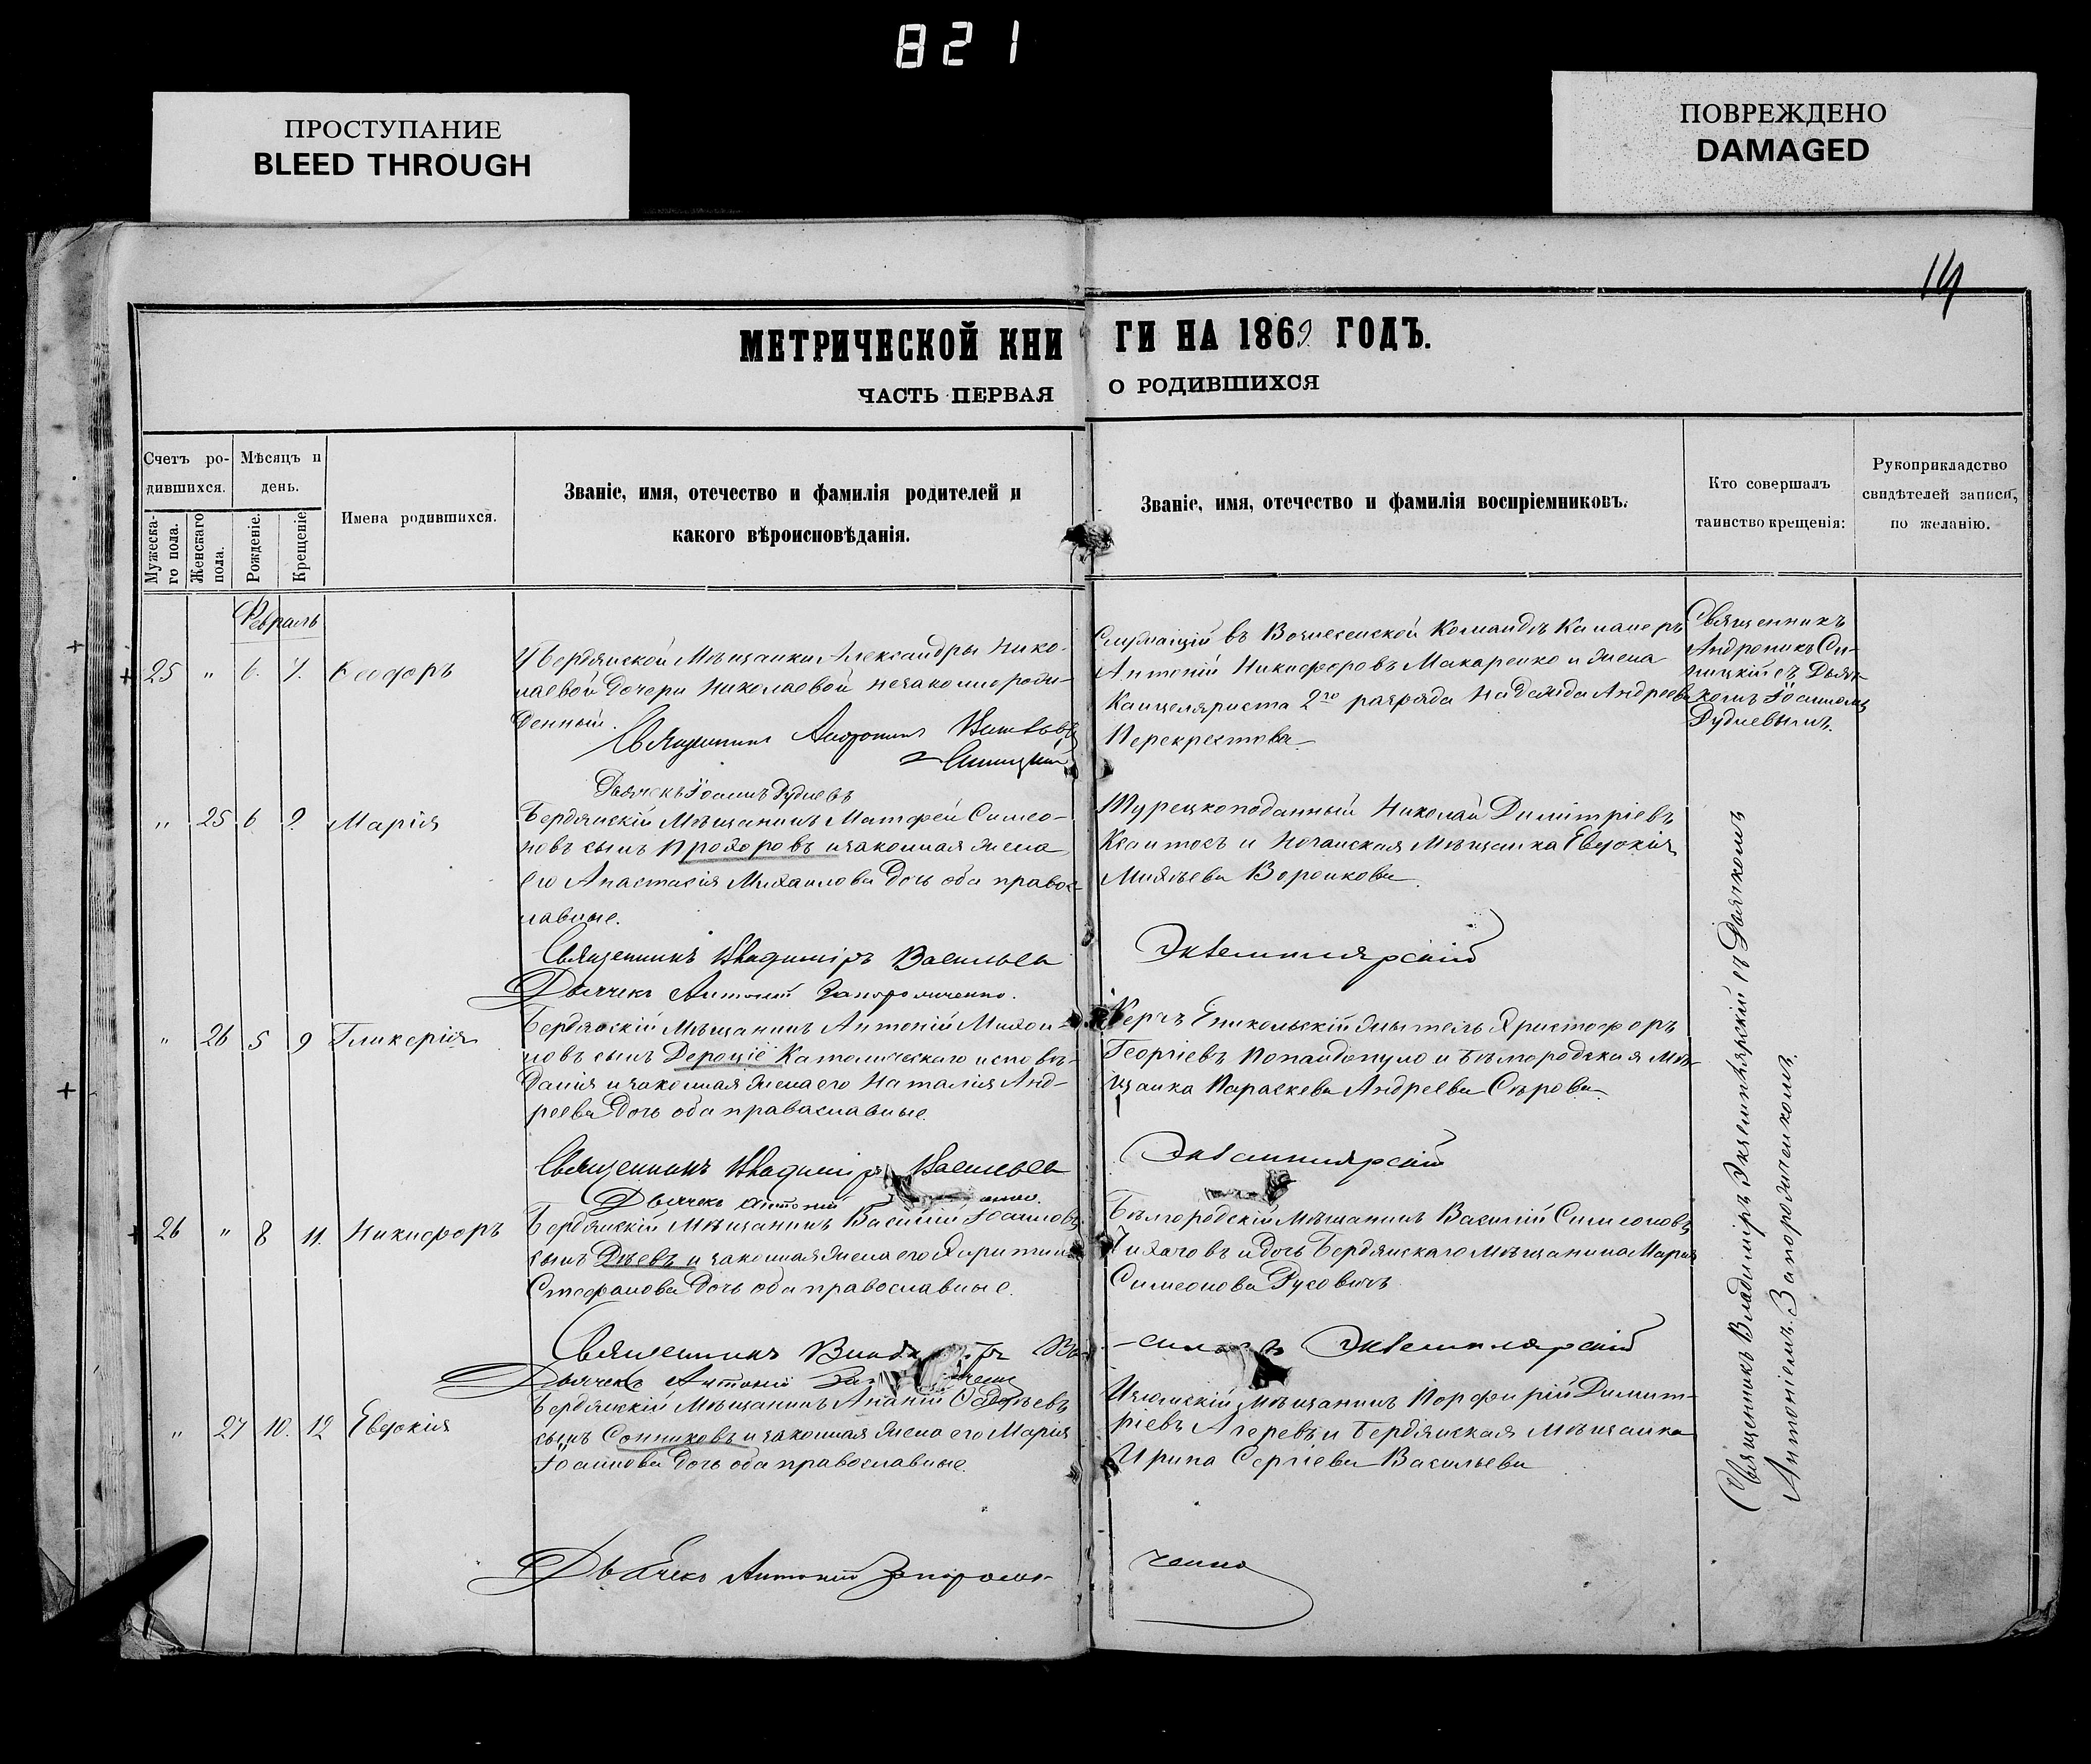 821
ПРОСТУПАНИЕ
BLEED THROUGH
ПОВРЕЖДЕНО
DAMAGED
19
МЕТРИЧЕСКОЙ КНИ ГИ НА 1869 ГОДЪ.
ЧАСТЬ ПЕРВАЯ О РОДИВШИХСЯ
Счетъ ро-
дившихся.
Мужеска-
го пола.
Женскаго
пола.
Мѣсяцъ и
день.
Рожденіе.
Крещеніе
Имена родившихся.
Званіе, имя, отечество и фамилія родителей и
какого вѣроисповѣданія.
Званіе, имя, отечество и фамилія воспріемниковъ.
Кто совершалъ
таинство крещенія:
Рукоприкладство
свидѣтелей записи,
по желанію.
Февраль
25 " 6. 7. Ѳеодоръ
У Бердянской Мѣщанки Александры Нико-
лаевой дочери Николаевой незаконнорож-
денный.
Священникъ Андроникъ
Синицкій
Дьячекъ Іоаннъ Рудневъ
Служащій въ Вознесенской Командѣ
Антоній Никифоровъ Макаренко и жена
Канцеляриста 2го разряда Надежда Андреева
Перекрестова
Священникъ
Андроникъ Си-
ницкій съ Дьяч-
комъ Іоанномъ
Рудневымъ.
" 25 6 9. Марія
Бердянскій Мѣщанинъ Матфей Симео-
новъ сынъ Прохоровъ и законная жена
его Анастасія Михаилова дочь оба правос-
лавные.
Священникъ Владиміръ Васильевъ
Дьячекъ Антоній Запорожченко.
Турецкоподанный Николай Димитріевъ
и Ногайская Мѣщанка Евдокія
Михѣева Воронкова
Экземплярскій
" 26 5 9 Гликерія
Бердянскій Мѣщанинъ Антоній Михаи-
ловъ сынъ Католическаго исповѣ-
данія и законная жена его Наталія Анд-
реева дочь оба православные.
Священникъ Владиміръ Васильевъ
Дьячекъ Антоній
Керчъ Еникольскій житель Христофоръ
Георгіевъ Попандопуло и Бѣлгородская Мѣ-
щанка Параскева Андреева Сѣрова
Экземплярскій
26 " 8 11. Никифоръ
Бердянскій Мѣщанинъ Василій Іоанновъ
сынъ Дѣевъ и законная жена его Харитина
Стефанова дочь оба православные.
Священникъ Ва-
Дьячекъ Антоній
Бѣлгородскій Мѣщанинъ Василій Симеоновъ
Чихачовъ и дочь Бердянскаго Мѣщанина Марія
Симеонова Русовичъ
-сильевъ Экземплярскій
" 27 10. 12 Евдокія
Бердянскій Мѣщанинъ Ананій
сынъ Сотниковъ и законная жена его Марія
Іоаннова дочь оба православные.
Дьячекъ Антоній Запорож-
Изюмскій Мѣщанинъ Порфирій Димит-
ріевъ Агеревъ и Бердянская Мѣщанка
Ирина Сергіева Васильева
ченко
Священникъ Владиміръ Экземплярскій съ Дьячкомъ
Антоніемъ Запорожченкомъ.